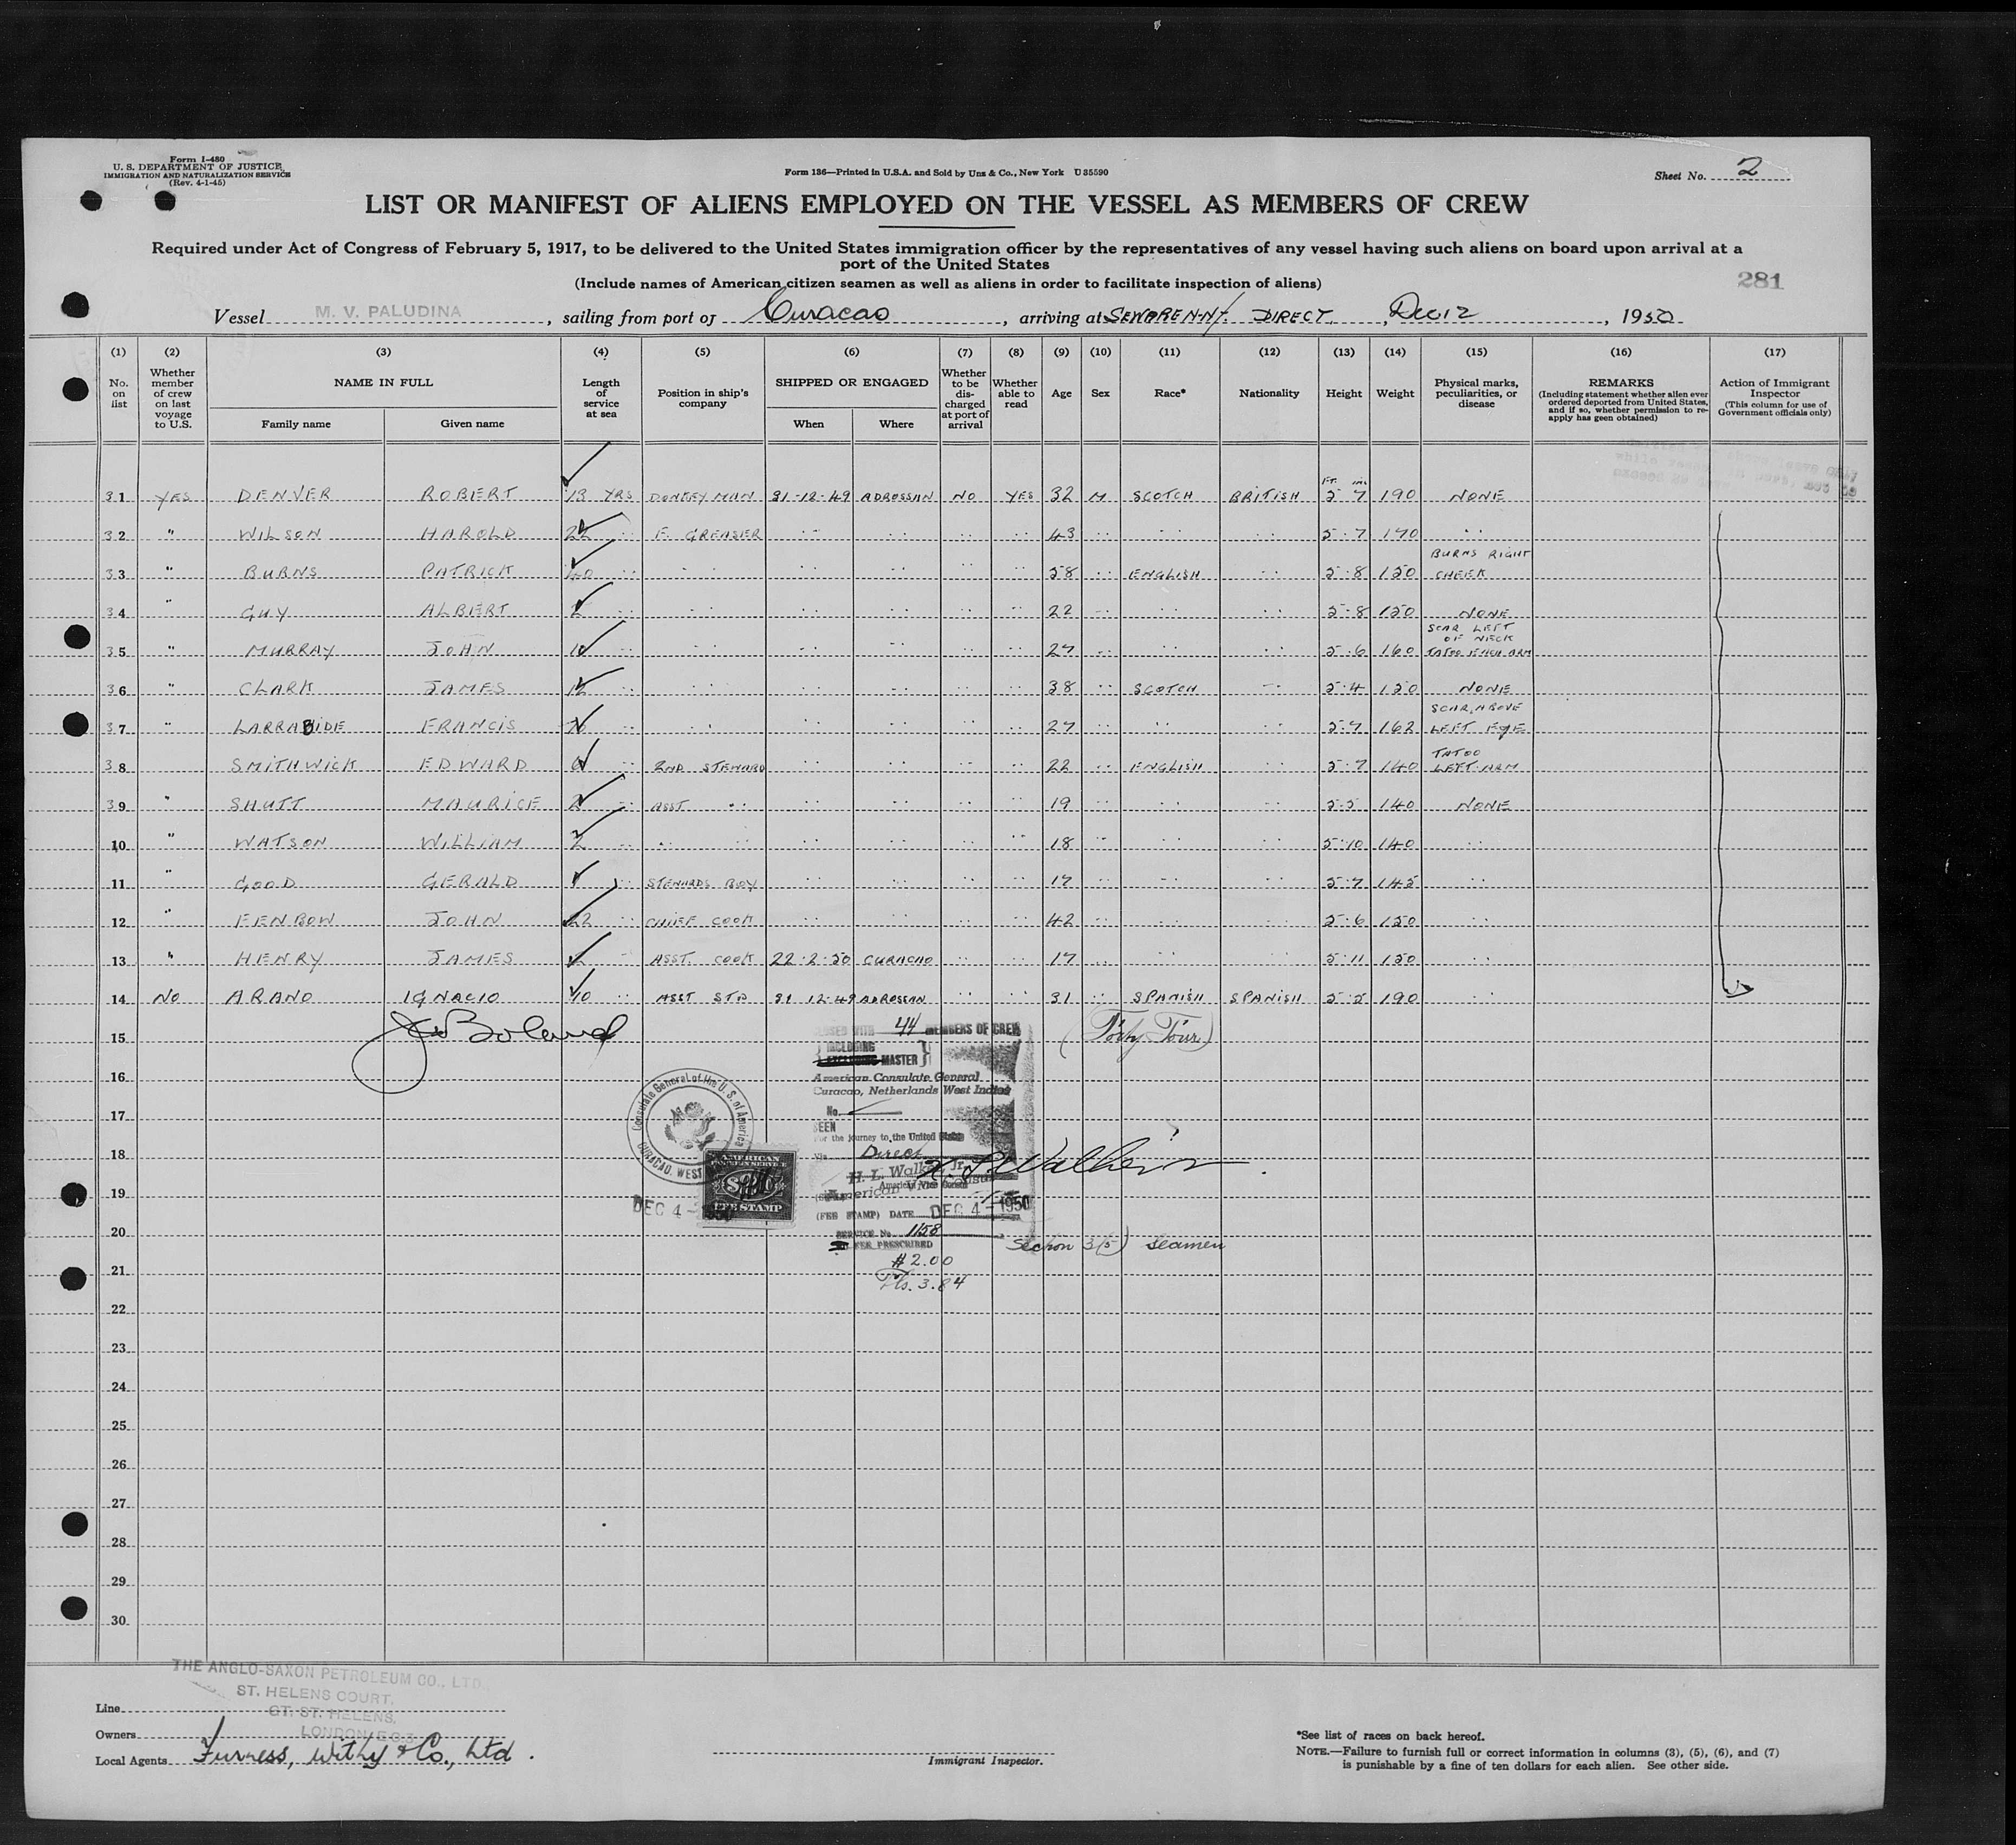 Form I-480
U. S. DEPARTMENT OF JUSTICE
IMMIGRATION AND NATURALIZATION SERVICE
(Rev. 4-1-45)
Form 136—Printed in U.S.A. and Sold by Unz & Co., New York U 35590
Sheet No. 2
LIST OR MANIFEST OF ALIENS EMPLOYED ON THE VESSEL AS MEMBERS OF CREW
Required under Act of Congress of February 5, 1917, to be delivered to the United States immigration officer by the representatives of any vessel having such aliens on board upon arrival at a
port of the United States
(Include names of American citizen seamen as well as aliens in order to facilitate inspection of aliens)
281
Vessel M. V. PALUDINA, sailing from port of Curacao, arriving at SEWAREN NY. DIRECT, Dec 12, 1950
(1) (2) (3) (4) (5) (6) (7) (8) (9) (10) (11) (12) (13) (14) (15) (16) (17)
No. on list
Whether member of crew on last voyage to U.S.
NAME IN FULL
Family name Given name
Length of service at sea
Position in ship's company
SHIPPED OR ENGAGED
When Where
Whether to be discharged at port of arrival
Whether able to read
Age
Sex
Race*
Nationality
Height
Weight
Physical marks, peculiarities, or disease
REMARKS
(Including statement whether alien ever ordered deported from United States, and if so, whether permission to re-apply has geen obtained)
Action of Immigrant Inspector
(This column for use of Government officials only)
Ft. ins
31 YES DENVER ROBERT 13 YRS DONKEYMAN 31-12-49 ADROSSAN NO YES 32 M SCOTCH BRITISH 5 7 190 NONE
32 " WILSON HAROLD 22 " F. GREASER " " " " 43 " " " 5-7 170 "
33 " BURNS PATRICK 40 " " " " " " 58 " ENGLISH " 5-8 150 BURNS RIGHT CHEEK
34 " GUY ALBERT 2 " " " " " " 22 " " " 5-8 150 NONE
35 " MURRAY JOHN 10 " " " " " " 27 " " " 5-6 160 SCAR LEFT OF NECK TATOO EACH ARM
36 " CLARK JAMES 12 " " " " " " 38 " SCOTCH " 5-4 150 NONE
37 " LARRABIDE FRANCIS " " " " " " 27 " " " 5-7 162 SCAR ABOVE LEFT EYE
38 " SMITHWICK EDWARD 6 2ND STEWARD " " " " 22 " ENGLISH " 5-7 140 TATOO LEFT ARM
39 " SHUTT MAURICE 2 " ASST " " " " " 19 " " " 5-5 140 NONE
10 " WATSON WILLIAM 2 " " " " " " " 18 " " " 5-10 140 "
11 " GOOD GERALD " STEWARDS BOY " " " " 17 " " " 5-7 145 "
12 " FENBOW JOHN 22 " CHIEF COOK " " " " 42 " " " 5-6 150 "
13 " HENRY JAMES " ASST. COOK 22-2-50 CURACAO " " 17 " " " 5-11 150 "
14 NO ARANO IGNACIO 10 " ASST STD 31 12-49 ADROSSAN " " 31 " SPANISH SPANISH 5-5 190 "
15
16
17
18
19
20
21
22
23
24
25
26
27
28
29
30
J. Boland
CLOSED WITH 44 MEMBERS OF CREW (Forty Four)
INCLUDING
EXCLUDING MASTER
American Consulate General
Curacao, Netherlands West Indies
No.
SEEN
For the journey to the United States
Via Direct
H. L. Walker Jr.
American Vice Consul
(FEE STAMP) DATE DEC 4 - 1950
SERVICE No. 1158
FEE PRESCRIBED
$2.00
Fls. 3.84
Section 3(5) seamen
Consulate General of the U. S. of America
CURACAO, WEST
AMERICAN
FEE STAMP
DEC 4 - 1950
THE ANGLO-SAXON PETROLEUM CO., LTD.,
ST. HELENS COURT,
GT. ST. HELENS,
LONDON, E.C.3
Line
Owners
Local Agents Furness, Withy & Co., Ltd.
Immigrant Inspector.
*See list of races on back hereof.
NOTE.—Failure to furnish full or correct information in columns (3), (5), (6), and (7)
is punishable by a fine of ten dollars for each alien. See other side.